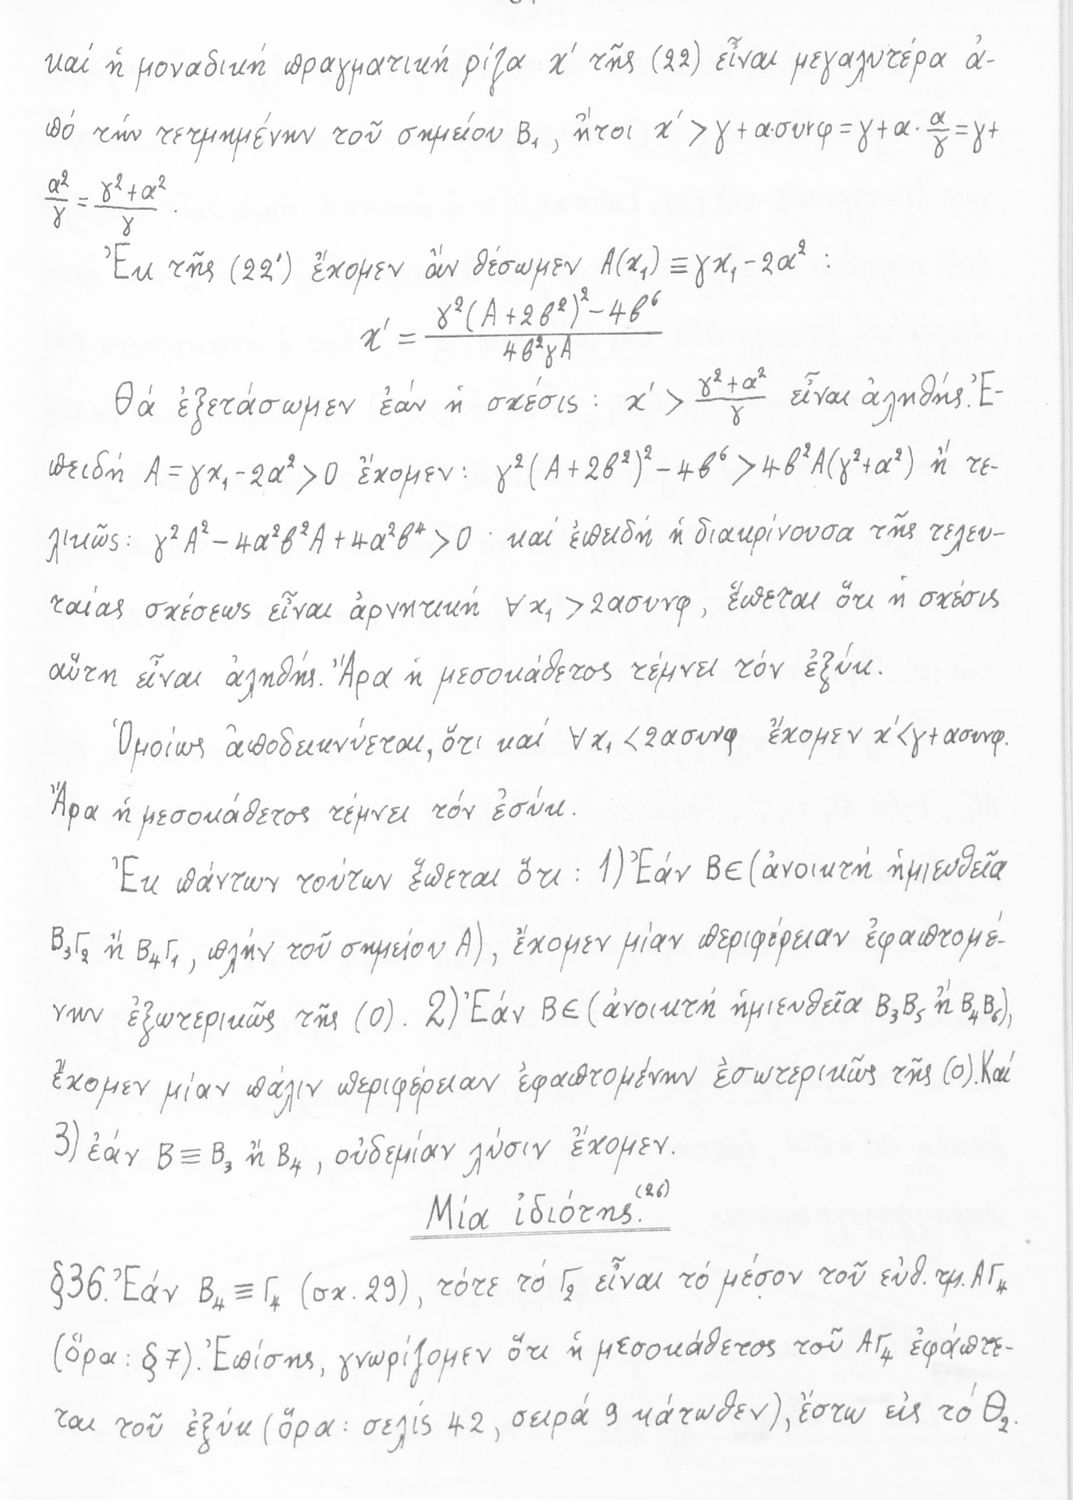 καί ἡ μοναδική πραγματική ρίζα x′ τῆς (22) εἶναι μεγαλυτέρα ἀ-
πό τήν τετμημένην τοῦ σημείου Β₁, ἤτοι x′ > γ + α·συνφ = γ + α · α/γ = γ +
α²/γ = (γ² + α²)/γ .
Ἐκ τῆς (22′) ἔχομεν ἄν θέσωμεν Α(x₁) ≡ γx₁ - 2α² :
x′ = (γ²(Α + 2β²)² - 4β⁶)/(4β²γΑ)
Θά ἐξετάσωμεν ἐάν ἡ σχέσις : x′ > (γ² + α²)/γ εἶναι ἀληθής. Ἐ-
πειδή Α = γx₁ - 2α² > 0 ἔχομεν : γ²(Α + 2β²)² - 4β⁶ > 4β²Α(γ² + α²) ἤ τε-
λικῶς : γ²Α² - 4α²β²Α + 4α²β⁴ > 0 · καί ἐπειδή ἡ διακρίνουσα τῆς τελευ-
ταίας σχέσεως εἶναι ἀρνητική ∀x₁ > 2ασυνφ, ἕπεται ὅτι ἡ σχέσις
αὕτη εἶναι ἀληθής. Ἄρα ἡ μεσοκάθετος τέμνει τόν ἐξύκ.
Ὁμοίως ἀποδεικνύεται, ὅτι καί ∀x₁ < 2ασυνφ ἔχομεν x′ < γ + ασυνφ.
Ἄρα ἡ μεσοκάθετος τέμνει τόν ἐσύκ.
Ἐκ πάντων τούτων ἕπεται ὅτι : 1) Ἐάν Β ∈ (ἀνοικτή ἡμιευθεῖα
Β₃Γ₂ ἤ Β₄Γ₁, πλήν τοῦ σημείου Α), ἔχομεν μίαν περιφέρειαν ἐφαπτομέ-
νην ἐξωτερικῶς τῆς (Ο). 2) Ἐάν Β ∈ (ἀνοικτή ἡμιευθεῖα Β₃Β₅ ἤ Β₄Β₆),
ἔχομεν μίαν πάλιν περιφέρειαν ἐφαπτομένην ἐσωτερικῶς τῆς (Ο). Καί
3) ἐάν Β ≡ Β₃ ἤ Β₄, οὐδεμίαν λύσιν ἔχομεν.
Μία ἰδιότης.⁽²⁶⁾
§36. Ἐάν Β₄ ≡ Γ₄ (σχ. 29), τότε τό Γ₂ εἶναι τό μέσον τοῦ εὐθ. τμ. ΑΓ₄
(ὅρα : §7). Ἐπίσης, γνωρίζομεν ὅτι ἡ μεσοκάθετος τοῦ ΑΓ₄ ἐφάπτε-
ται τοῦ ἐξύκ (ὅρα : σελίς 42, σειρά 9 κάτωθεν), ἔστω εἰς τό Θ₂.